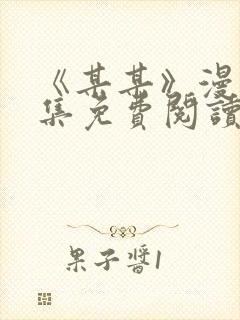 《某某》漫
集免費閱讀
果子醬1